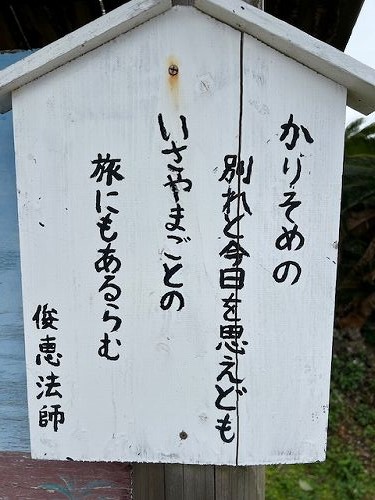 かりそめの
別れと今日を思えども
いさやまごとの
旅にもあるらむ
俊恵法師